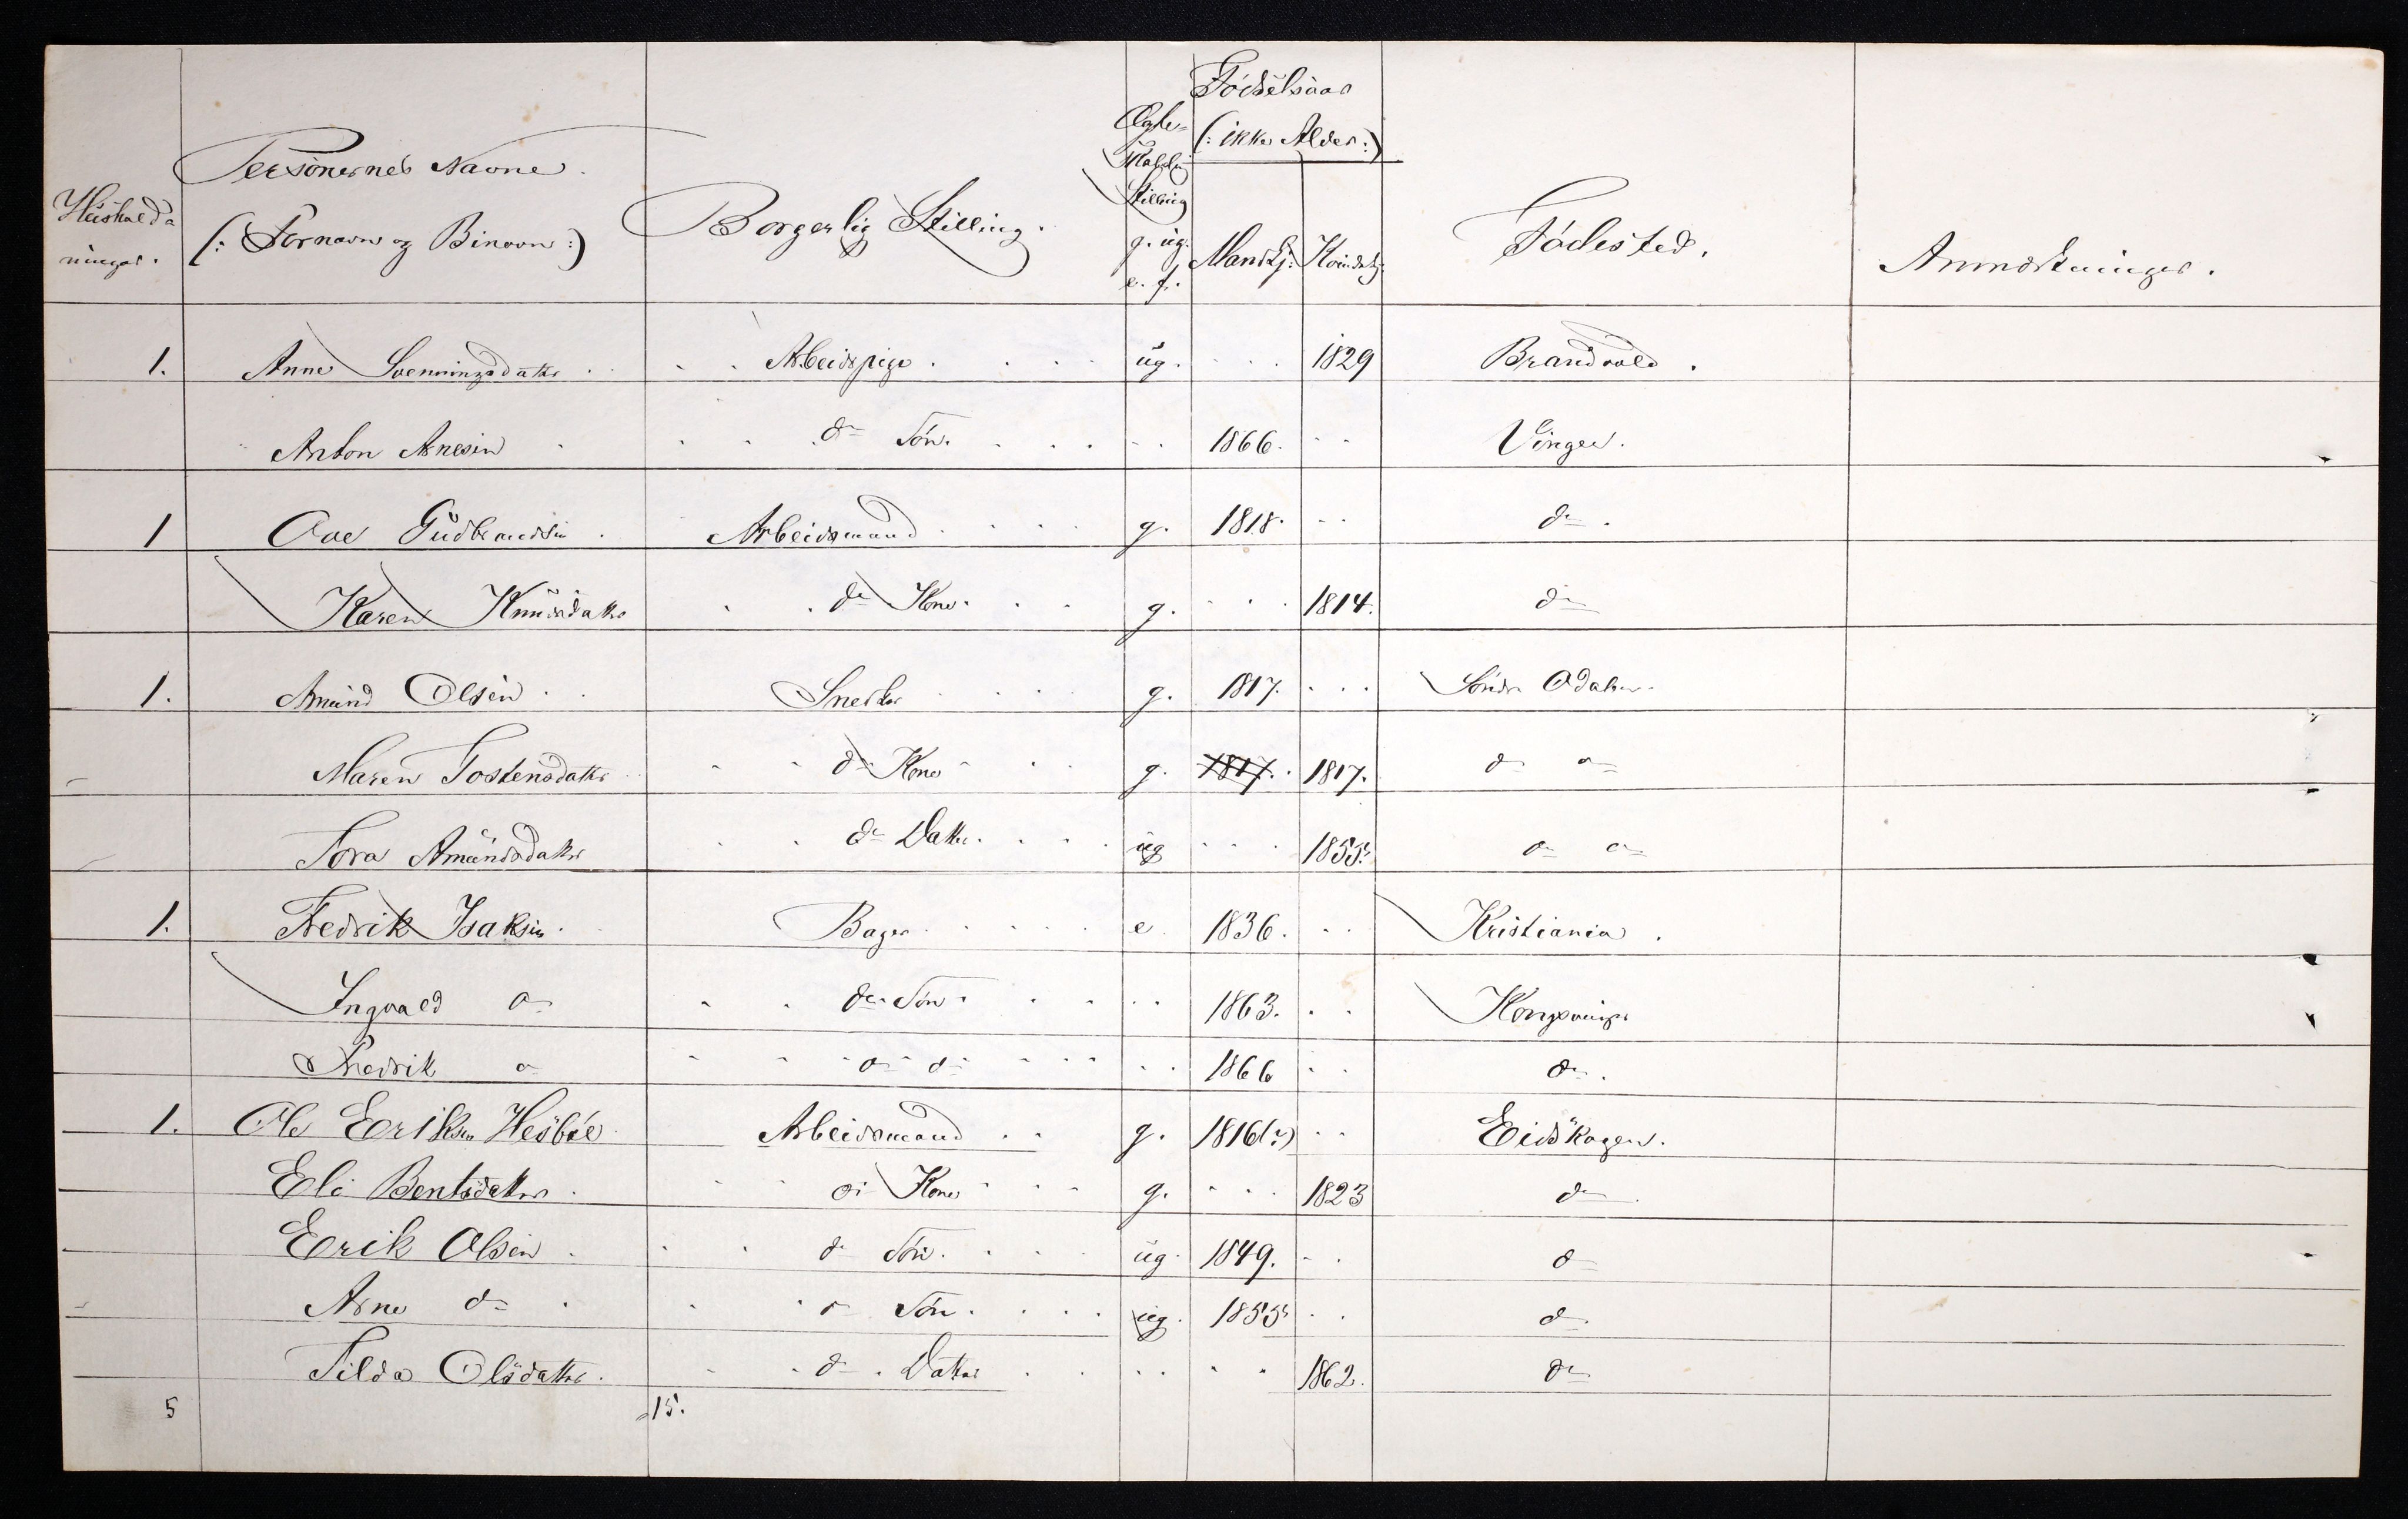 Hushold-
ninger. Personernes Navne (: Fornavn og Binavn :) Borgerlig Stilling. Ægte-skabelig Stilling g. ug. e. f. Fødselsaar (: ikke Alder :) Mandkj: Kvindekj: Fødested. Anmærkninger.
1. Anne Svenningsdatter Arbeidspige ug. 1829 Brandvold.
Anton Arnesen do Søn. 1866. Vinger.
1 Ove Gudbrandsen Arbeidsmand g. 1818. do
Karen Knudsdatter do Kone g. 1814. do
1. Amund Olsen Snedker g. 1817. Søndre Odalen
Maren Tostensdatter do Kone g. 1817. 1817. do do
Tora Amundsdatter do Datter. ug 1855. do do
1. Fredrik Isaksen Bager e 1836. Kristiania.
Ingvald do do Søn 1863. Kongsvinger
Fredrik do do do 1866 do.
1. Ole Eriksen Hesbøl Arbeidsmand g. 1816(?) Eidskogen.
Eli Bentsdatter do Kone g. 1823 do
Erik Olsen do Søn. ug. 1849. do
Arne do do Søn. ug. 1855 do
Tilda Olsdatter. do Datter 1862. do
5 15.